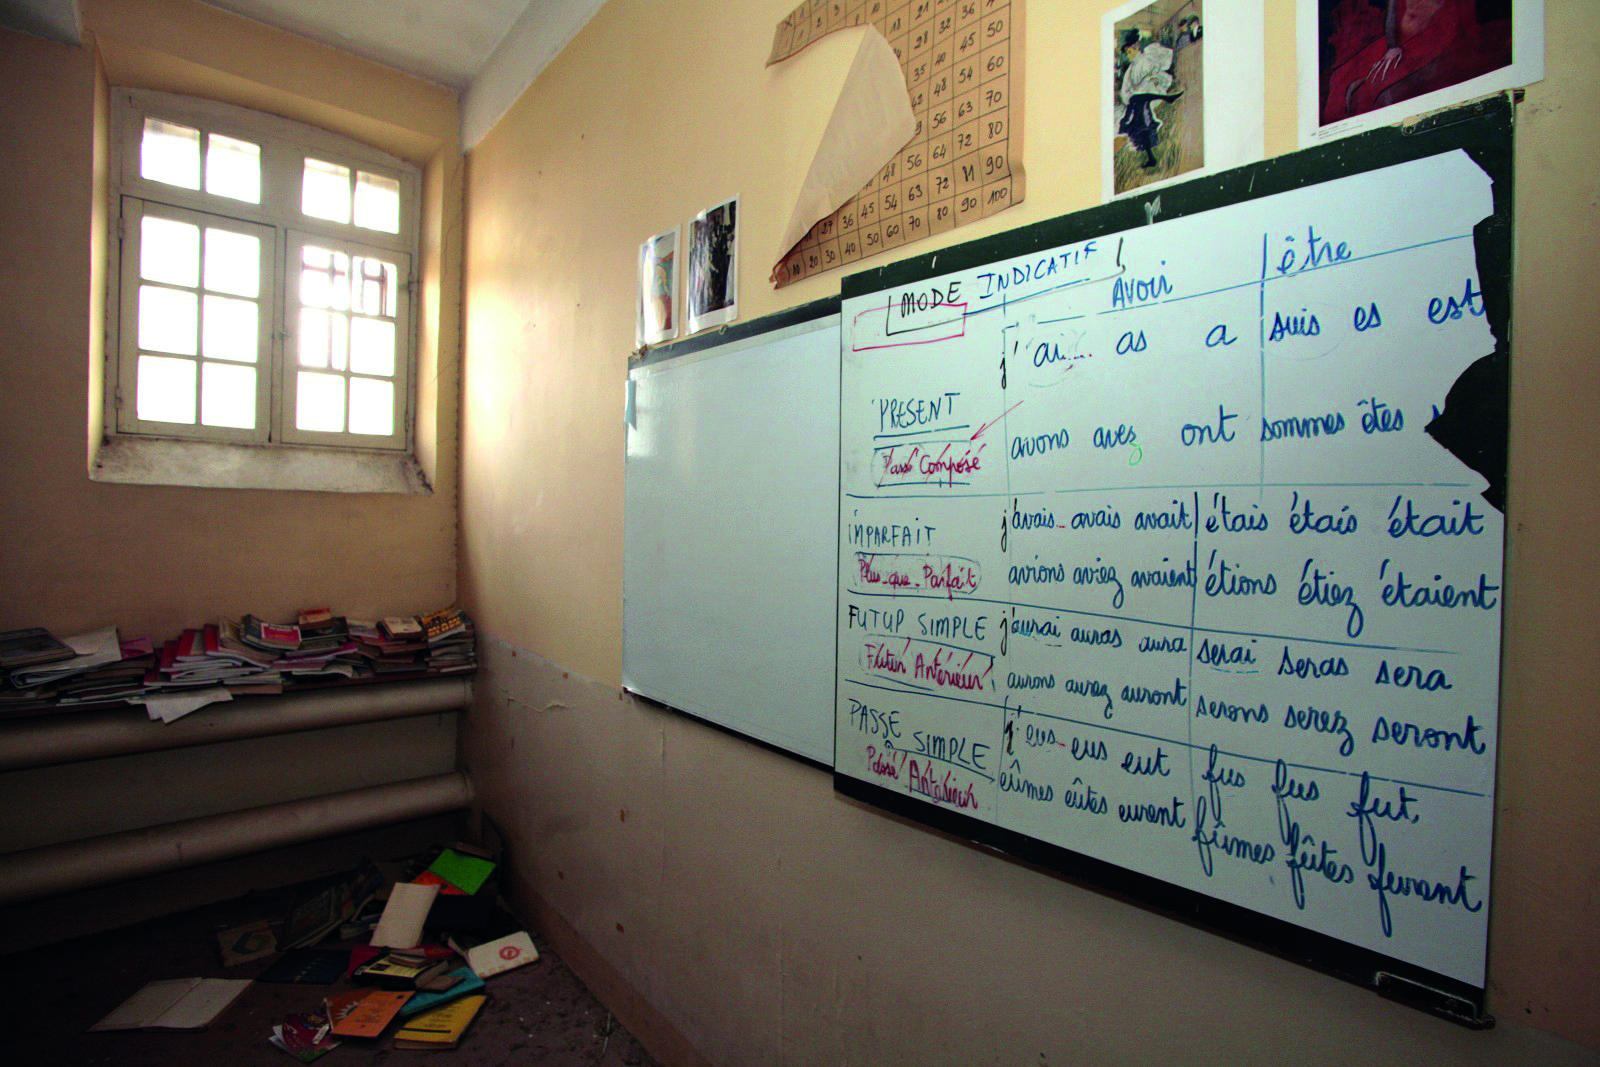 36
18 28 32 45 50
35 40 54 60
42 48 63 70
56 72 80
48 56 64 81 90
27 36 45 54 63 72 90 100
10 20 30 40 50 60 70 80
MODE INDICATIF
AVOIR être
j'ai.... as a suis es est
PRESENT
avons avez ont sommes êtes
Passé Composé
IMPARFAIT
j'avais_ avais avait étais étais était
Plus-que-Parfait
avions aviez avaient étions étiez étaient
FUTUR SIMPLE
j'aurai auras aura serai seras sera
Futur Antérieur
aurons aurez auront serons serez seront
PASSÉ SIMPLE
j'eus_ eus eut fus fus fut,
Passé Antérieur
eûmes eûtes eurent fûmes fûtes furent